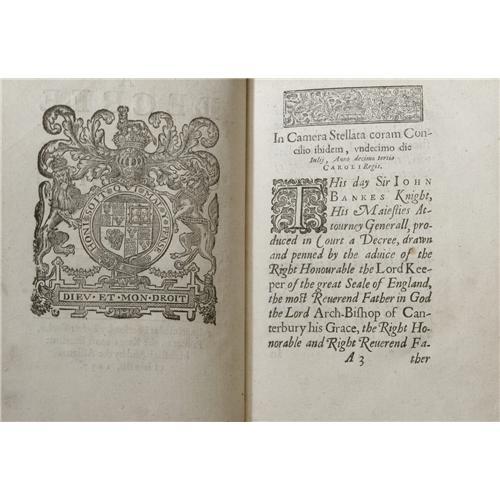 HONI·SOIT·QVI·MAL·Y·PENSE
DIEV·ET·MON·DROIT
In Camera Stellata coram Con-
cilio ibidem, vndecimo die
Iulij, Anno decimo tertio
CAROLI Regis.
THis day Sir IOHN
BANKES Knight,
His Maiesties At-
tourney Generall, pro-
duced in Court a Decree, drawn
and penned by the aduice of the
Right Honourable the Lord Kee-
per of the great Seale of England,
the most Reuerend Father in God
the Lord Arch-Bishop of Can-
terbury his Grace, the Right Ho-
norable and Right Reuerend Fa-
A 3 ther